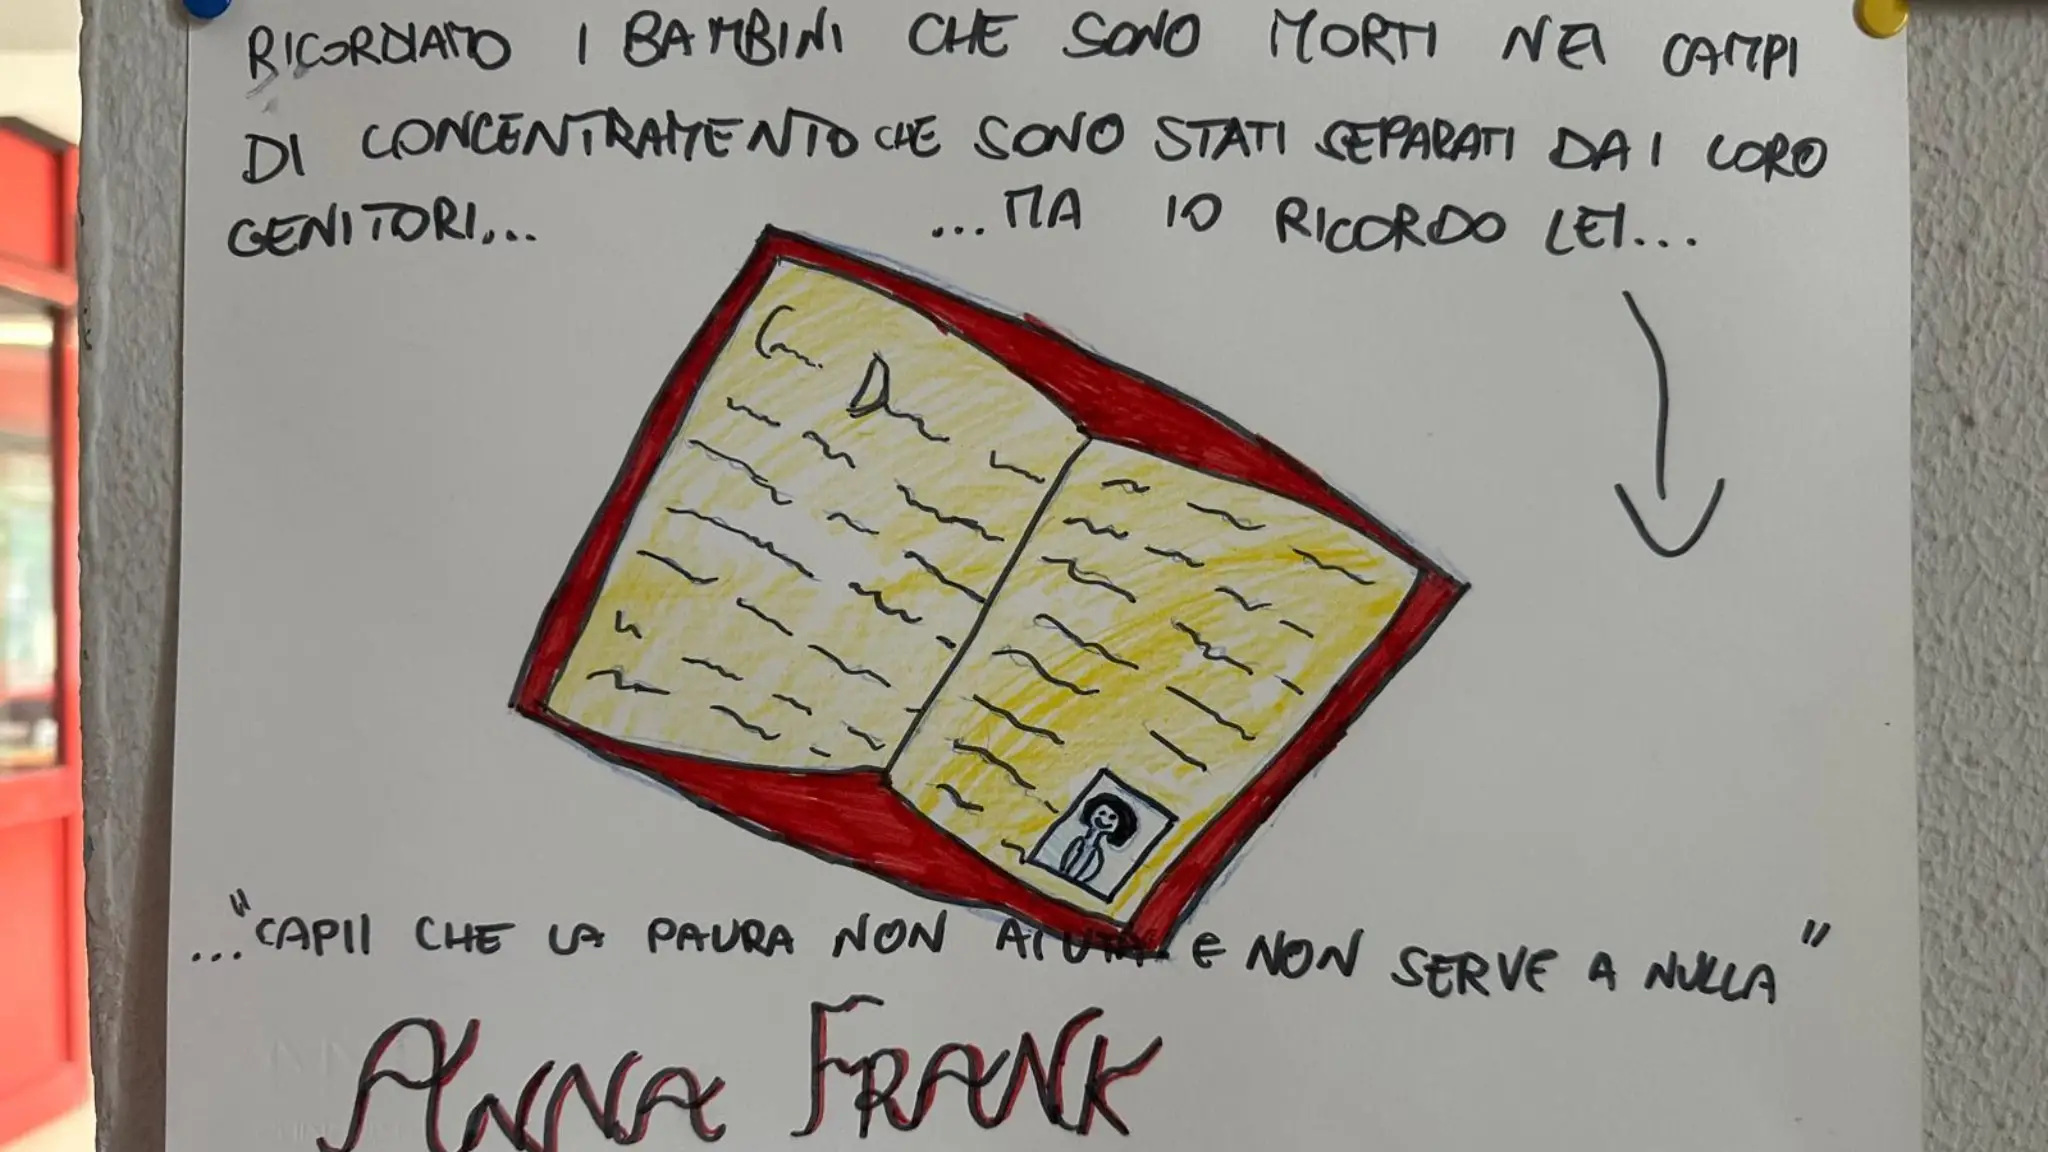 RICORDIAMO I BAMBINI CHE SONO MORTI NEI CAMPI
DI CONCENTRAMENTO CHE SONO STATI SEPARATI DAI LORO
GENITORI... ...MA IO RICORDO LEI...
..."CAPII CHE LA PAURA NON AIUTA E NON SERVE A NULLA"
ANNA FRANK